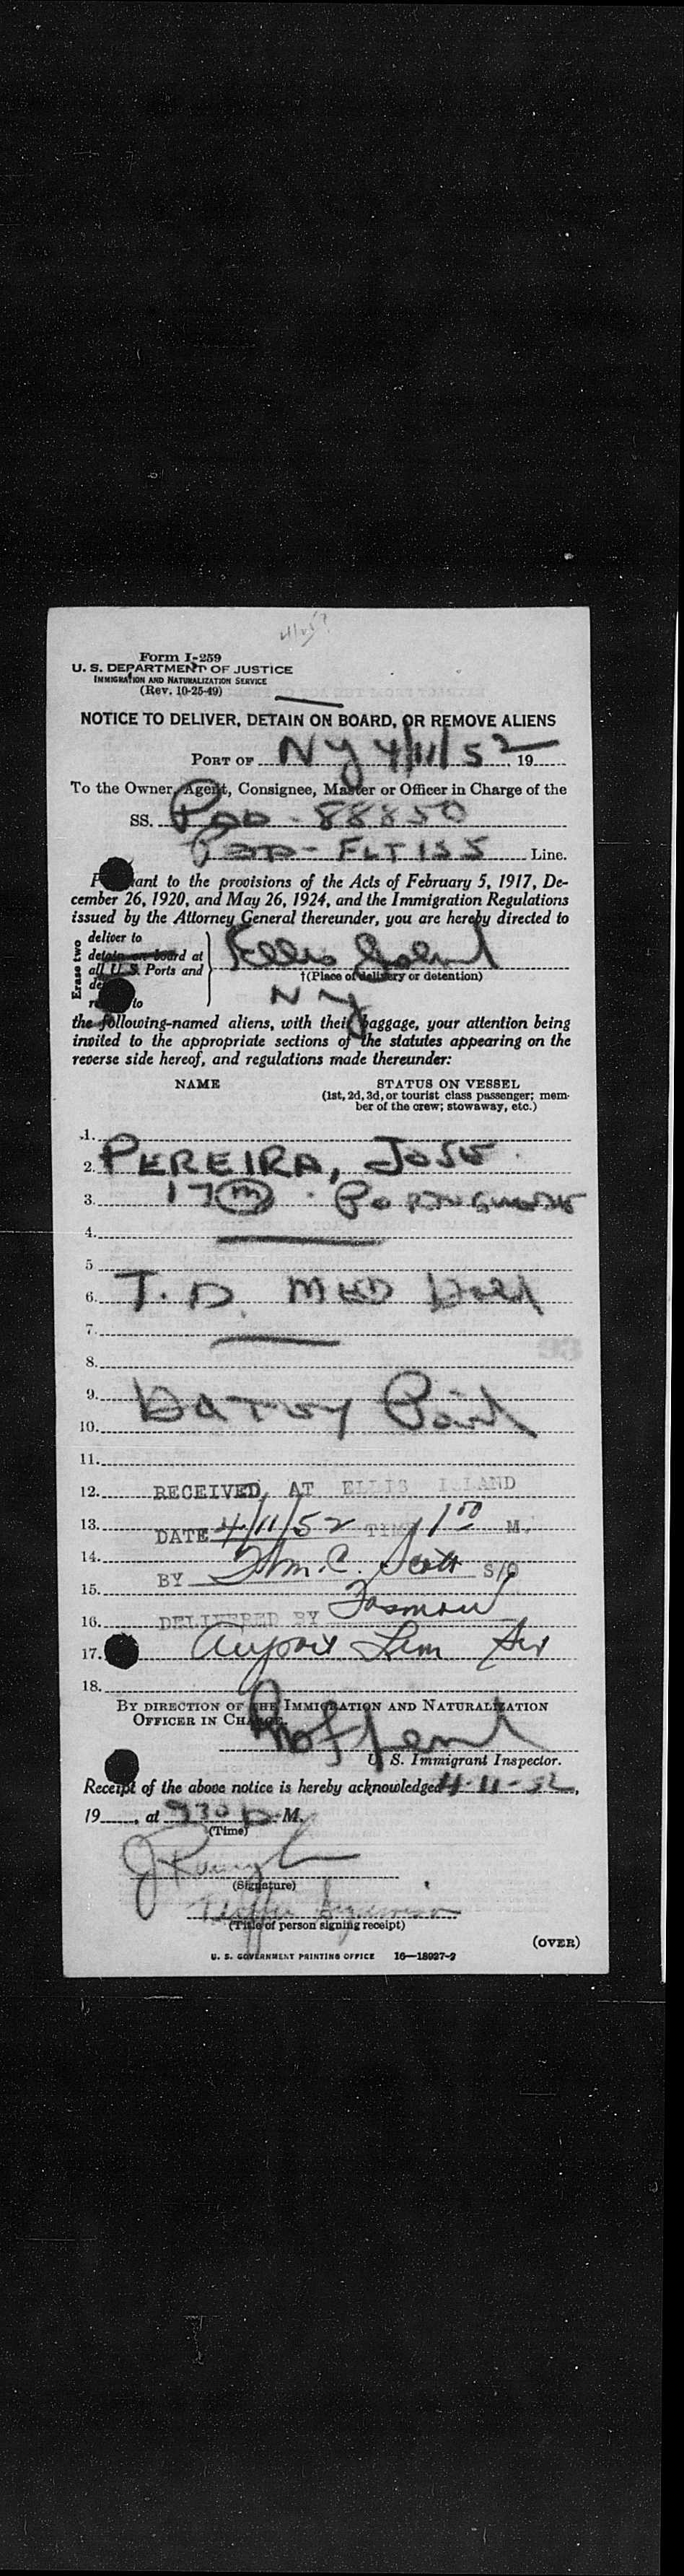 Form I-259
U. S. DEPARTMENT OF JUSTICE
IMMIGRATION AND NATURALIZATION SERVICE
(Rev. 10-25-49)
NOTICE TO DELIVER, DETAIN ON BOARD, OR REMOVE ALIENS
PORT OF NY 4/11/52 19
To the Owner, Agent, Consignee, Master or Officer in Charge of the
SS. 88850
FLT 155 Line.
ant to the provisions of the Acts of February 5, 1917, De-
cember 26, 1920, and May 26, 1924, and the Immigration Regulations
issued by the Attorney General thereunder, you are hereby directed to
Erase two
deliver to
detain on board at
all U. S. Ports and
de
to
Ellis Island
†(Place of delivery or detention)
NY
the following-named aliens, with their baggage, your attention being
invited to the appropriate sections of the statutes appearing on the
reverse side hereof, and regulations made thereunder:
NAME STATUS ON VESSEL
(1st, 2d, 3d, or tourist class passenger; mem-
ber of the crew; stowaway, etc.)
1.
2. PEREIRA, JOSE
3. 17 m PORTUGUESE
4.
5.
6. T. D. MED Hold
7.
8.
9.
10.
11.
12. RECEIVED AT ELLIS ISLAND
13. DATE 4/11/52 TIME 1 00 M.
14.
BY Wm. C. Scott S/O
15.
16. DELIVERED BY
17. Airport Lim Ser
18.
BY DIRECTION OF THE IMMIGRATION AND NATURALIZATION
OFFICER IN CHARGE.
U. S. Immigrant Inspector.
Receipt of the above notice is hereby acknowledged 4-11-52,
19 , at 930 M.
(Time)
(Signature)
(Title of person signing receipt)
(OVER)
U. S. GOVERNMENT PRINTING OFFICE 16—18927-2